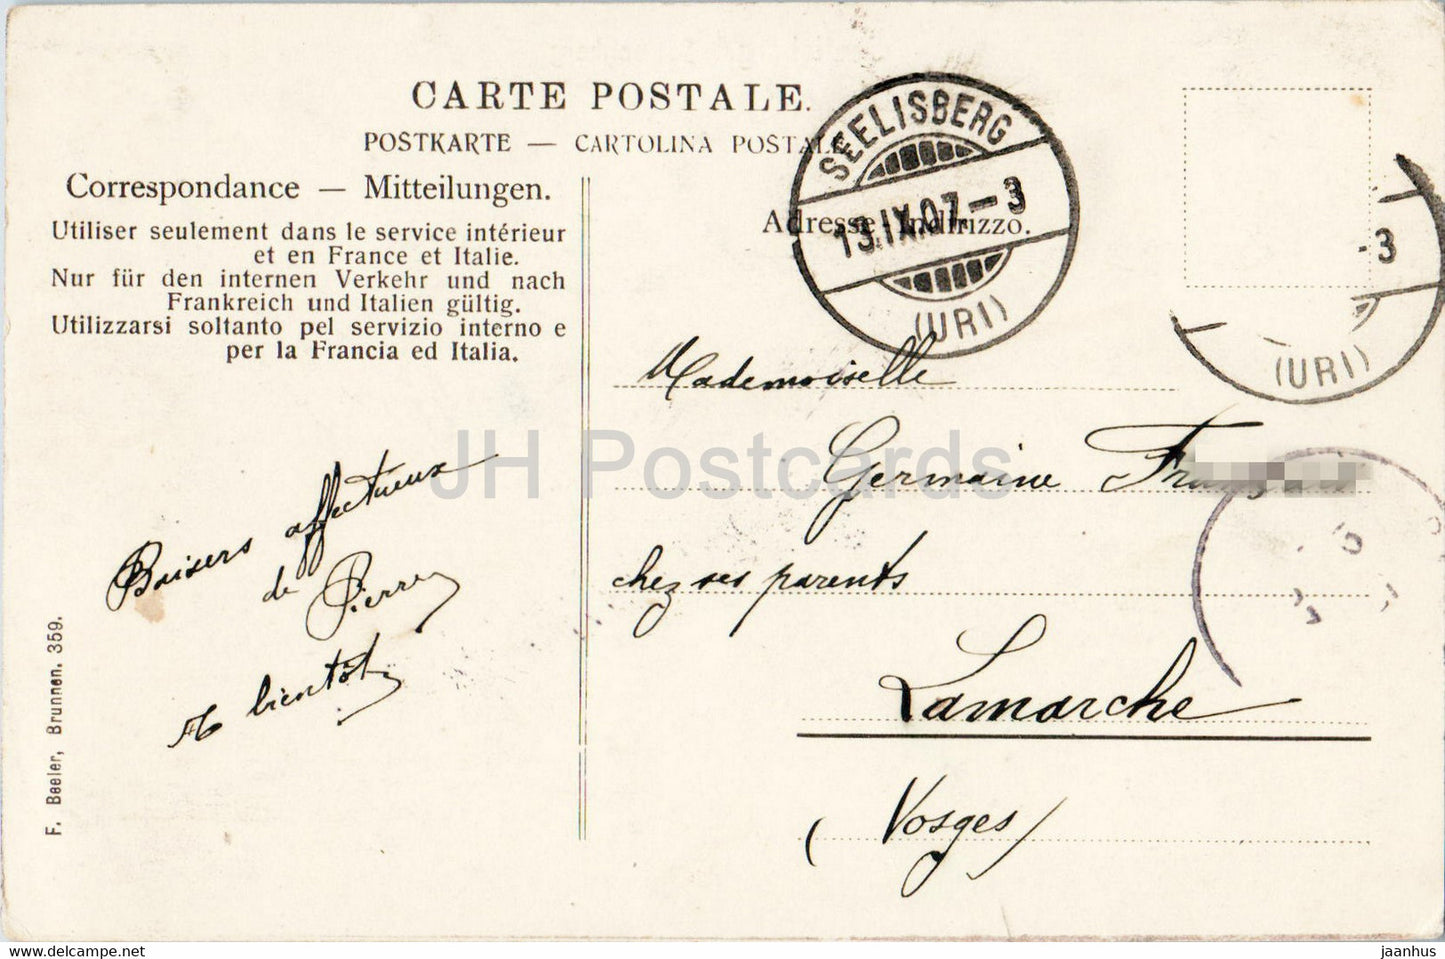 CARTE POSTALE.
POSTKARTE — CARTOLINA POSTALE
Correspondance — Mitteilungen.
Utiliser seulement dans le service intérieur
et en France et Italie.
Nur für den internen Verkehr und nach
Frankreich und Italien gültig.
Utilizzarsi soltanto pel servizio interno e
per la Francia ed Italia.
Adresse - Indirizzo.
SEELISBERG
13.IX.07.-3
(URI)
-3
(URI)
Mademoiselle
Germaine
chez ses parents
Lamarche
(Vosges)
Baisers affectueux
de Pierre
A bientôt
F. Beeler, Brunnen. 359.
JH Postcards
https://www.delcampe.net
jaanhus